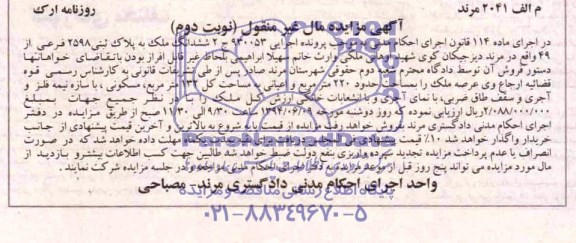 م الف ۲۰۴۱ مرند
روزنامه ارک
آگهی مزایده مال غیر منقول (نوبت دوم)
در اجرای ماده ۱۱۴ قانون اجرای احکام پرونده اجرایی ۹۳۰۰۵۳ ج ۲ ششدانگ ملک به پلاک ثبتی ۲۵۹۸ فرعی از
۴۹ واقع در دیزجیکان کوی ملکی وارث خانم سهیلا ابراهیمی بلحاظ غیر قابل افراز بودن باتقاضای خواهانها
دستور فروش آن توسط دادگاه محترم دوم حقوقی شهرستان مرند صادر پس از طی تشریفات قانونی به کارشناس رسمی قوه
قضائیه ارجاع وی عرصه ملک را حدود ۲۲۰ متر مربع و اعیانی مساحت کل متر مربع، مسکونی، با سازه نیمه فلز و
آجری و سقف طاق ضربی، با نمای آجری و با انشعابات خانگی ارزش کل ملک را با در نظر جمیع جهات بمبلغ
۲/۰۸۸/۰۰۰/۰۰۰ ریال ارزیابی نموده که روز دوشنبه مورخه ۱۳۹۴/۰۶/۰۹ ساعت ۹/۳۰ الی ۱۱/۳۰ صبح از طریق مزایده در دفتر
اجرای احکام مدنی دادگستری مرند بفروش خواهد رفت مزایده از قیمت پایه شروع به بالاترین و آخرین قیمت پیشنهادی از جانب
خریدار واگذار خواهد شد ۱۰٪ قیمت مهلت داده خواهد شد که در صورت
انصراف یا عدم پرداخت مزایده تجدید سپرده واریزی بنفع دولت ضبط خواهد شد طالبین جهت کسب اطلاعات بیشتر و بازدید از
مال مورد مزایده می تواند پنج روز قبل از در جلسه مزایده شرکت نمایند.
واحد اجرای احکام مدنی دادگستری مرند - مصباحی
پایگاه اطلاع رسانی مناقصه و مزایده
۰۲۱-۸۸۳۴۹۶۷۰-۵